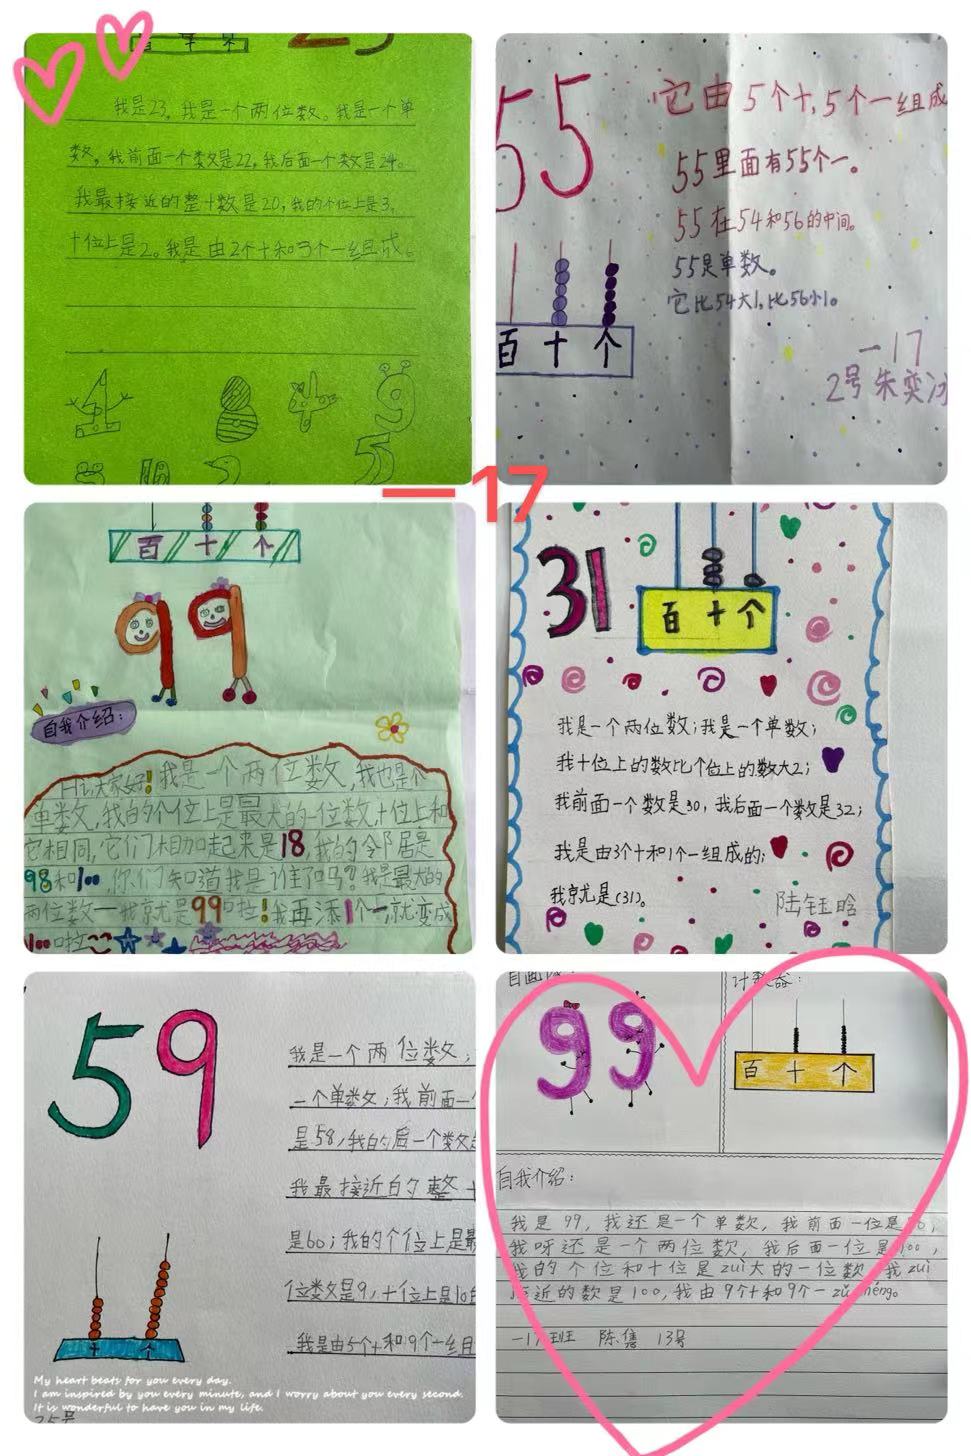 百 十 个
23
我是23，我是一个两位数。我是一个单
数，我前面一个数是22，我后面一个数是24。
我最接近的整十数是20，我的个位上是3，
十位上是2。我是由2个十和3个一组成。
1 8 4 9
5
55
它由5个十，5个一组成
55里面有55个一。
55在54和56的中间。
55是单数。
它比54大1，比56小1。
百 十 个
一17
2号 朱奕
一17
百 十 个
99
自我介绍：
Hi，大家好！我是一个两位数，我也是个
单数，我的个位上是最大的一位数，十位上和
它相同，它们相加起来是18，我的邻居是
98和100，你们知道我是谁了吗？我是最大的
两位数——我就是99啦！我再添1个一，就变成
100啦
31
百 十 个
我是一个两位数；我是一个单数；
我十位上的数比个位上的数大2；
我前面一个数是30，我后面一个数是32；
我是由3个十和1个一组成的；
我就是（31）。
陆钰晗
59
我是一个两位数；
一个单数；我前面一
是58，我的后一个数
我最接近的整十
是60；我的个位上是最
位数是9，十位上是
我是由5个十和9个一组
十 个
My heart beats for you every day.
I am inspired by you every minute, and I worry about you every second.
It is wonderful to have you in my life.
25号
自画像：
计数器：
99
百 十 个
自我介绍：
我是99，我还是一个单数，我前面一位是
我呀还是一个两位数，我后面一位是100，
我的个位和十位是zuì大的一位数，我zuì
近的数是100，我由9个十和9个一
一17班 陈隽 13号